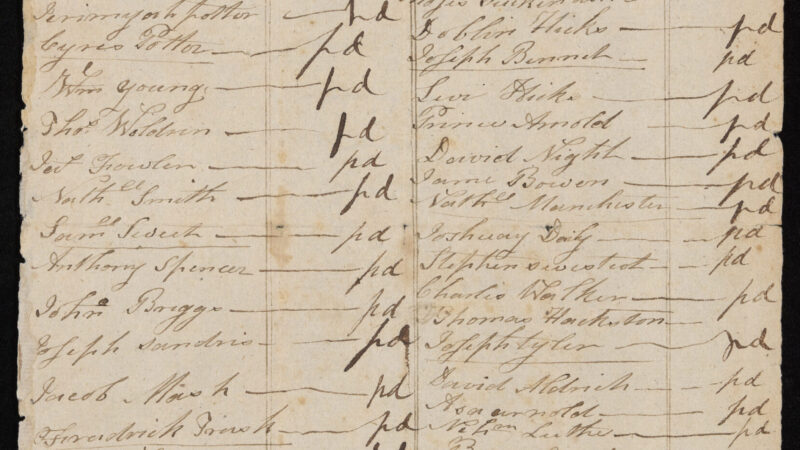 Jerimyah potter pd
Cyres Potter pd
Wm young pd
Thos Weldren pd
Fowler pd
Nathel Smith pd
Saml Sweet pd
Anthony Spencer pd
John Briggs pd
Joseph Sandris pd
Jacob Mash pd
Fradrick Trask pd
Doblin Hicks pd
Joseph Bennet pd
Levi Hicks pd
Prince Arnold pd
David Night pd
Jame Bowen pd
Nathel Manchester pd
Joshuay Daily pd
Stephen pd
Charles Walker pd
Thomas Hackston
Joseph tyler pd
David Aldrich pd
Asa arnold pd
Luthe pd